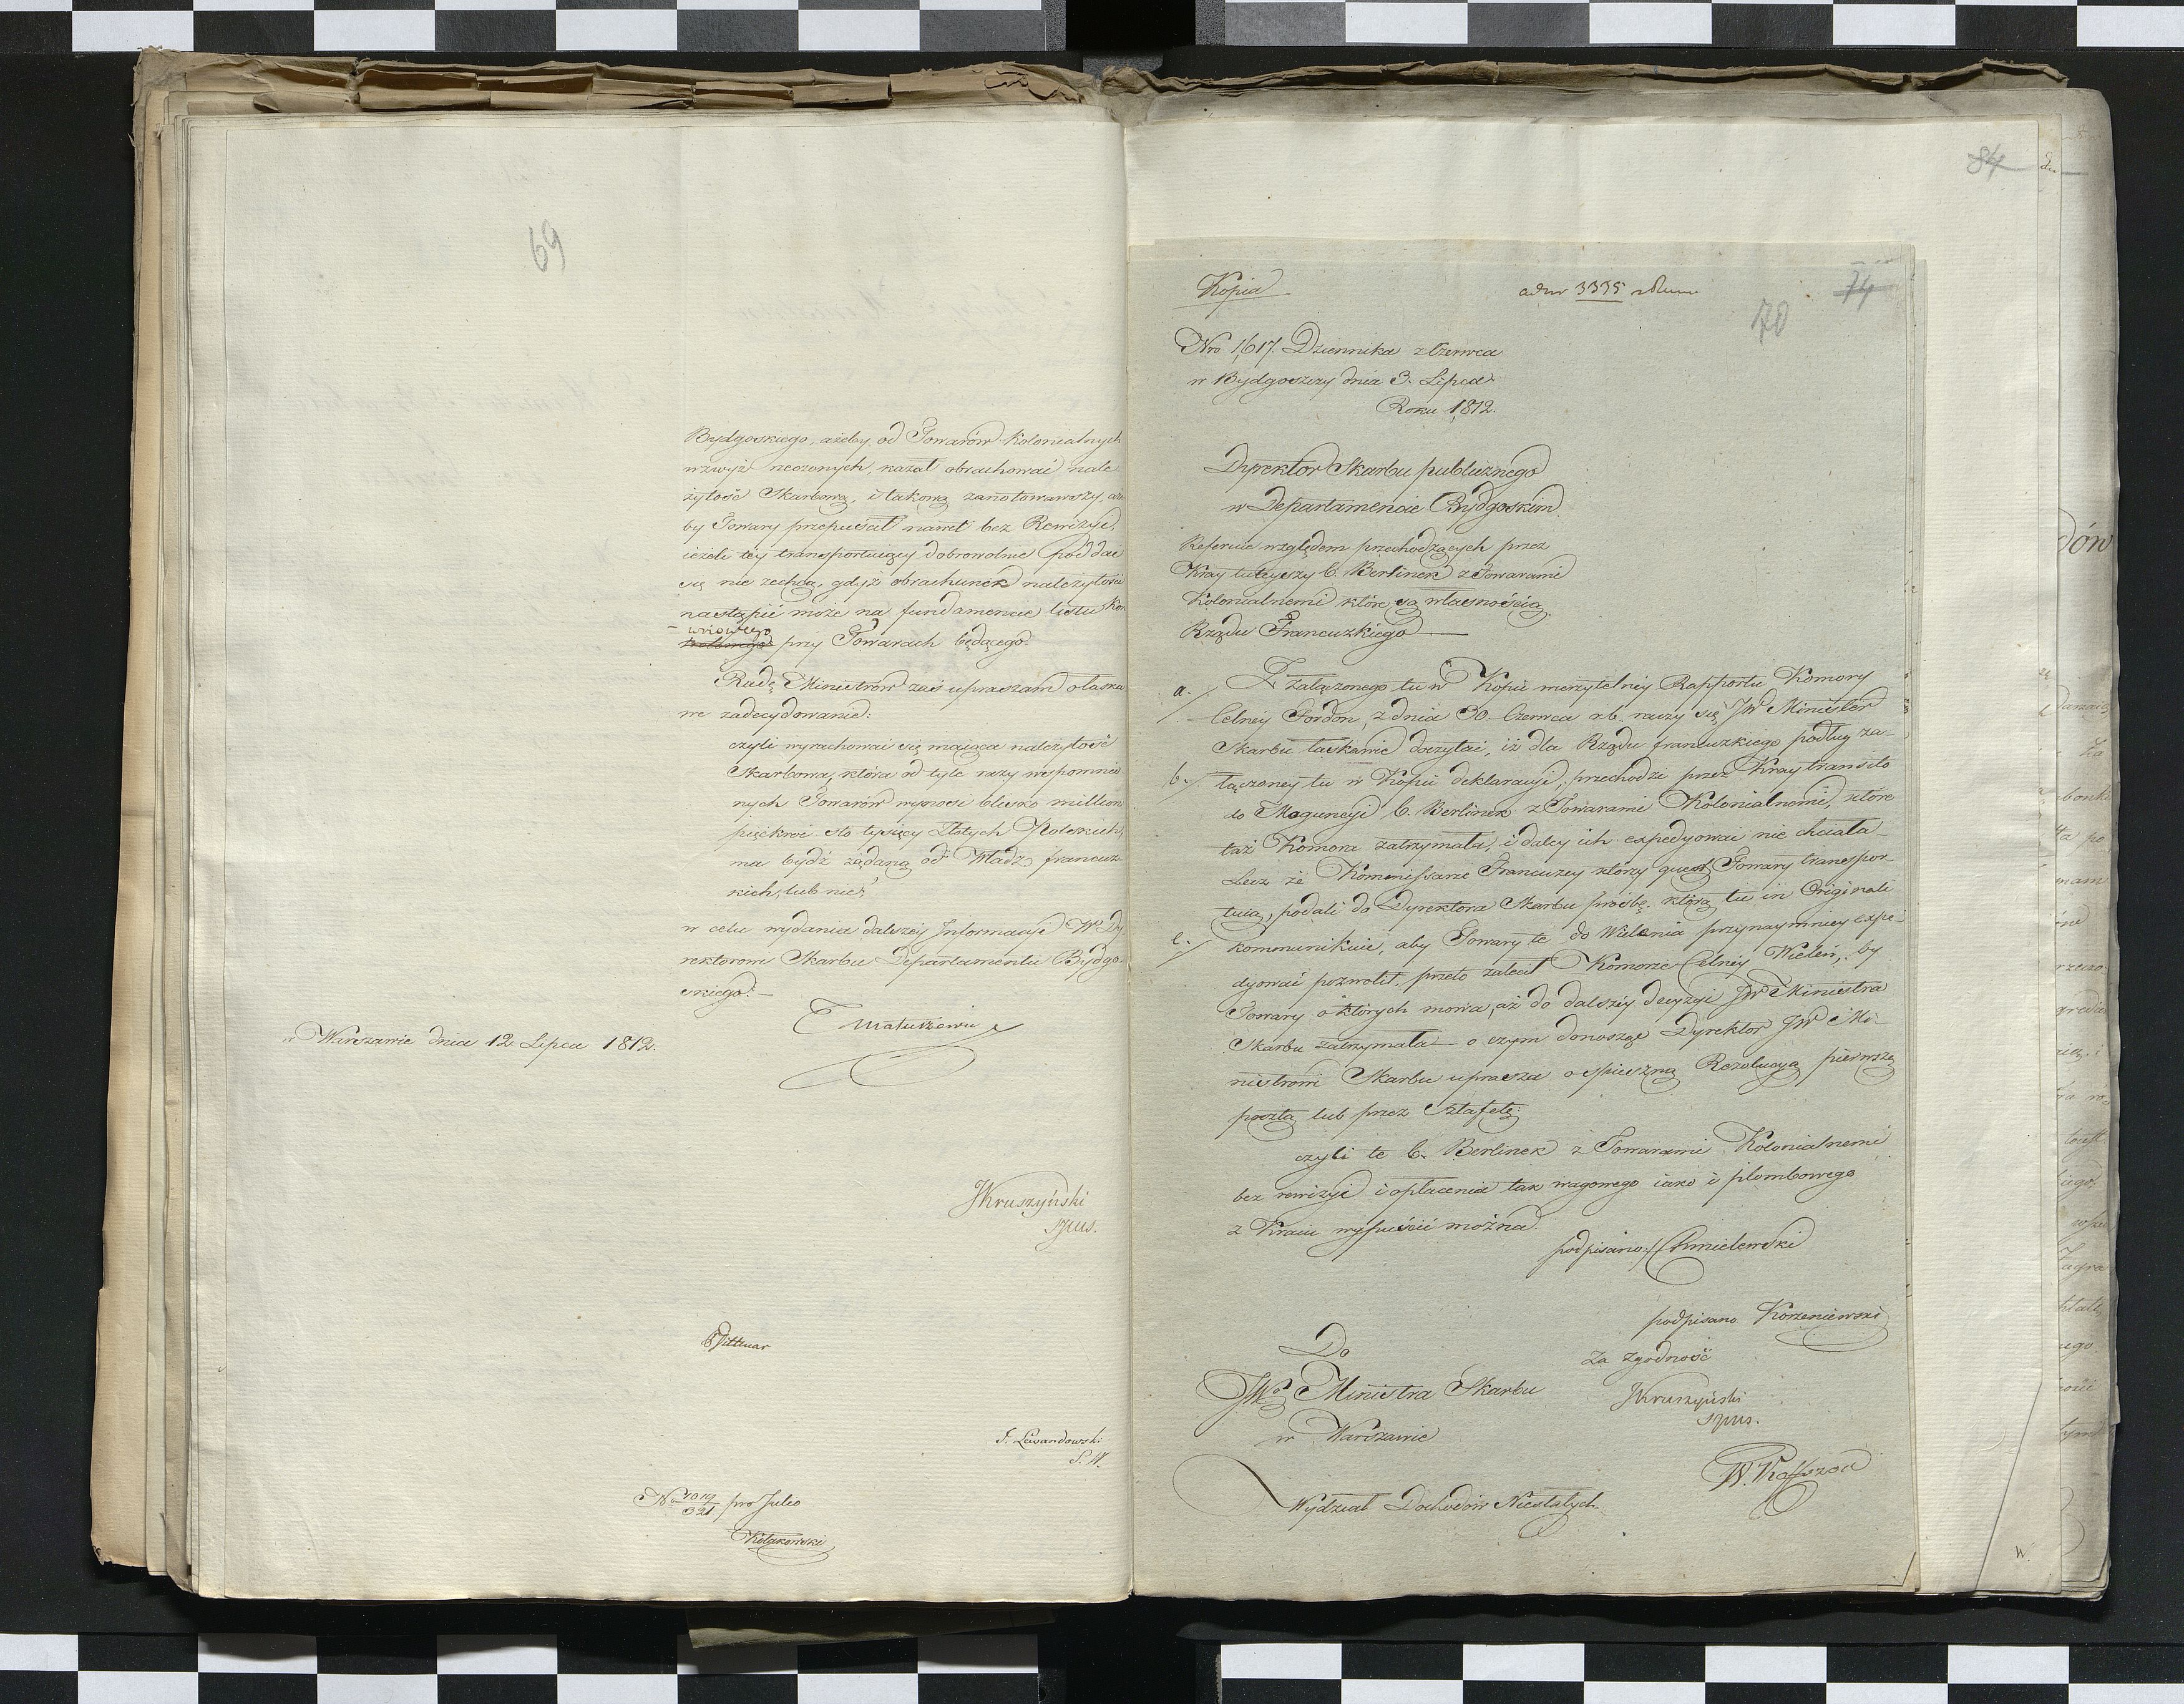 69
Bydgoskiego, ażeby od Towarów Kolonialnych
wzwyż rzeczonych, kazał obrachować nale
żytość Skarbową, i takową zanotowawszy, aże
by Towary przepuścił nawet bez Rewizyi,
ieżeli tey transportuiący dobrowolnie poddać
się nie zechcą, gdyż obrachunek należytości
nastąpić może na fundamencie listu Kon
wojowego
przy Towarach będącego.
Radę Ministrów zaś upraszam o łaska
we zadecydowanie:
czyli wyrachować się maiąca należytość
Skarbowa, która od tyle razy wspomnio
nych Towarów wynosi blisko million
pięćkroć sto tysięcy Złotych Polskich,
ma bydź żądaną od Władz francuz
kich, lub nie?
w celu wydania dalszey Informacyi W. Dy
rektorowi Skarbu Departamentu Bydgo
skiego.—
w Warszawie dnia 12. Lipca 1812.
T Matuszewic
JKruszyński
Dittmar
J. Lewandowski
S. W.
No 1019/321 pro Julio
Kołakowski
84
Kopia
ad Nr 3335
74
70
Nro 1,617. Dziennika z Czerwca
w Bydgoszczy dnia 3. Lipca
Roku 1812.
Dyrektor Skarbu publicznego
w Departamencie Bydgoskim
Referuie względem przechodzących przez
Kray tuteyszy 6. Berlinek z Towarami
Kolonialnemi które są własnością
Rządu Francuzkiego —
a./ Z załączonego tu w Kopii wierzytelney Rapportu Komory
Celney Fordon, z dnia 30. Czerwca r.b. raczy się JW Minister
Skarbu łaskawie doczytać, iż dla Rządu francuzkiego podług za-
b./ łączoney tu w Kopii deklaracyi, przechodzi przez Kray transito
do Moguncyi 6. Berlinek z Towarami Kolonialnemi, które
taż Komora zatrzymała, i daley ich expedyować nie chciała—
Lecz że Kommissarze Francuzcy którzy quest. Towary transpor-
tuią, podali do Dyrektora Skarbu prośbę, którą tu in Originali
c./ kommunikuie, aby Towary te do Wielenia przynaymniey expe-
dyować pozwolił, przeto zalecił Komorze Celney Wieleń, by
Towary o których mowa, aż do dalszey decyzyi JW Ministra
Skarbu zatrzymała— o czym donosząc Dyrektor JW Mi-
nistrowi Skarbu uprasza o spieszną Rezolucyą pierwszą
pocztą lub przez Sztafetę:
czyli te 6. Berlinek z Towarami Kolonialnemi
bez rewizyi i opłacenia tak wagowego iako i plombowego
z Kraiu wypuścić można.
podpisano:/ Chmielewski
podpisano Korzeniewski
Za zgodność
JKruszyński
Do
JWo Ministra Skarbu
w Warszawie
Wydział Dochodów Niestałych.